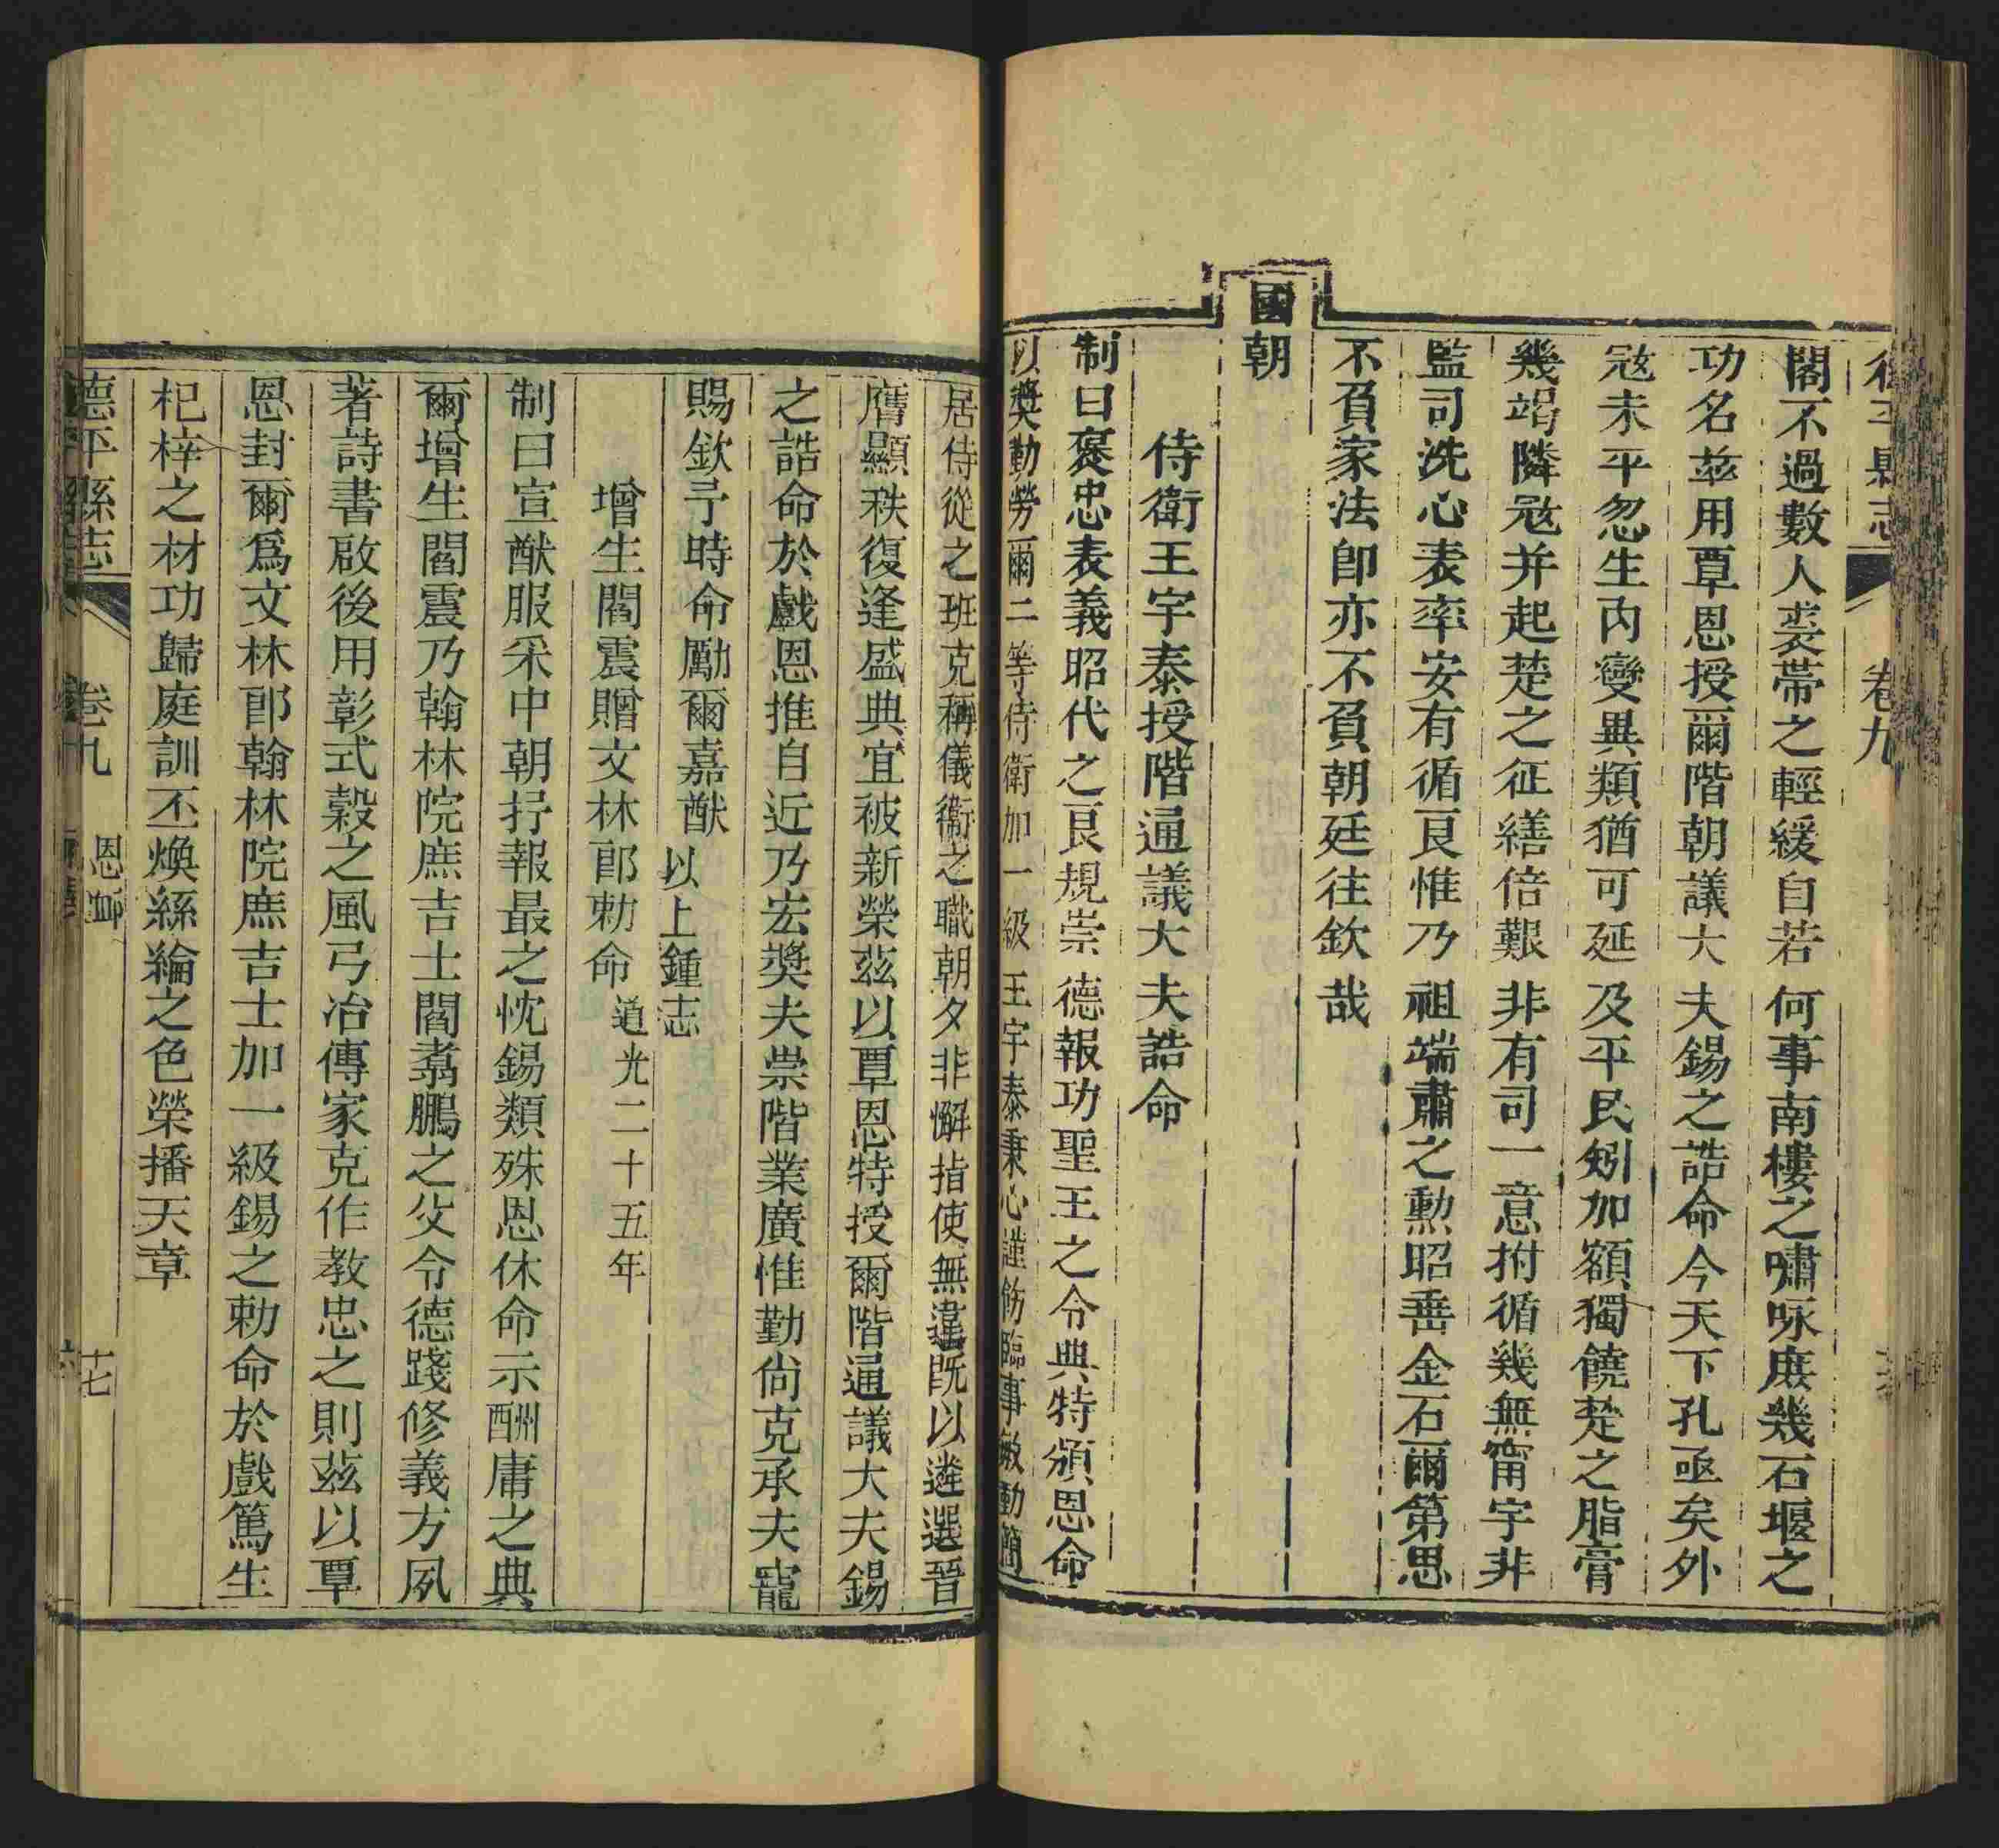 德平縣志 卷九
閣不過數人裘帶之輕緩自若何事南樓之嘯咏庶幾石堰之
功名茲用覃恩授爾階朝議大夫錫之誥命今天下孔亟矣外
寇未平忽生內變異類猶可延及平民矧加額獨饒楚之脂膏
幾竭隣寇并起楚之征繕倍艱非有司一意拊循幾無甯宇非
監司洗心表率安有循良惟乃祖端肅之勲昭垂金石爾第思
不負家法卽亦不負朝廷往欽哉
國朝
侍衛王宇泰授階通議大夫誥命
制曰褒忠表義昭代之良規崇德報功聖王之令典特頒恩命
以奬勤勞爾二等侍衛加一級王宇泰秉心謹飭臨事敏勤簡
居侍從之班克稱儀衞之職朝夕非懈指使無違旣以遴選晉
膺顯秩復逢盛典宜被新榮茲以覃恩特授爾階通議大夫錫
之誥命於戲恩推自近乃宏奬夫崇階業廣惟勤尙克承夫寵
賜欽予時命勵爾嘉猷 以上鍾志
增生閻震贈文林郎勅命 道光二十五年
制曰宣猷服采中朝抒報最之忱錫類殊恩休命示酬庸之典
爾增生閻震乃翰林院庶吉士閻翥鵬之父令德踐修義方夙
著詩書啟後用彰式穀之風弓冶傳家克作教忠之則茲以覃
恩封爾爲文林郎翰林院庶吉士加一級錫之勅命於戲篤生
杞梓之材功歸庭訓丕煥絲綸之色榮播天章
德平縣志 卷九 恩卹 十七